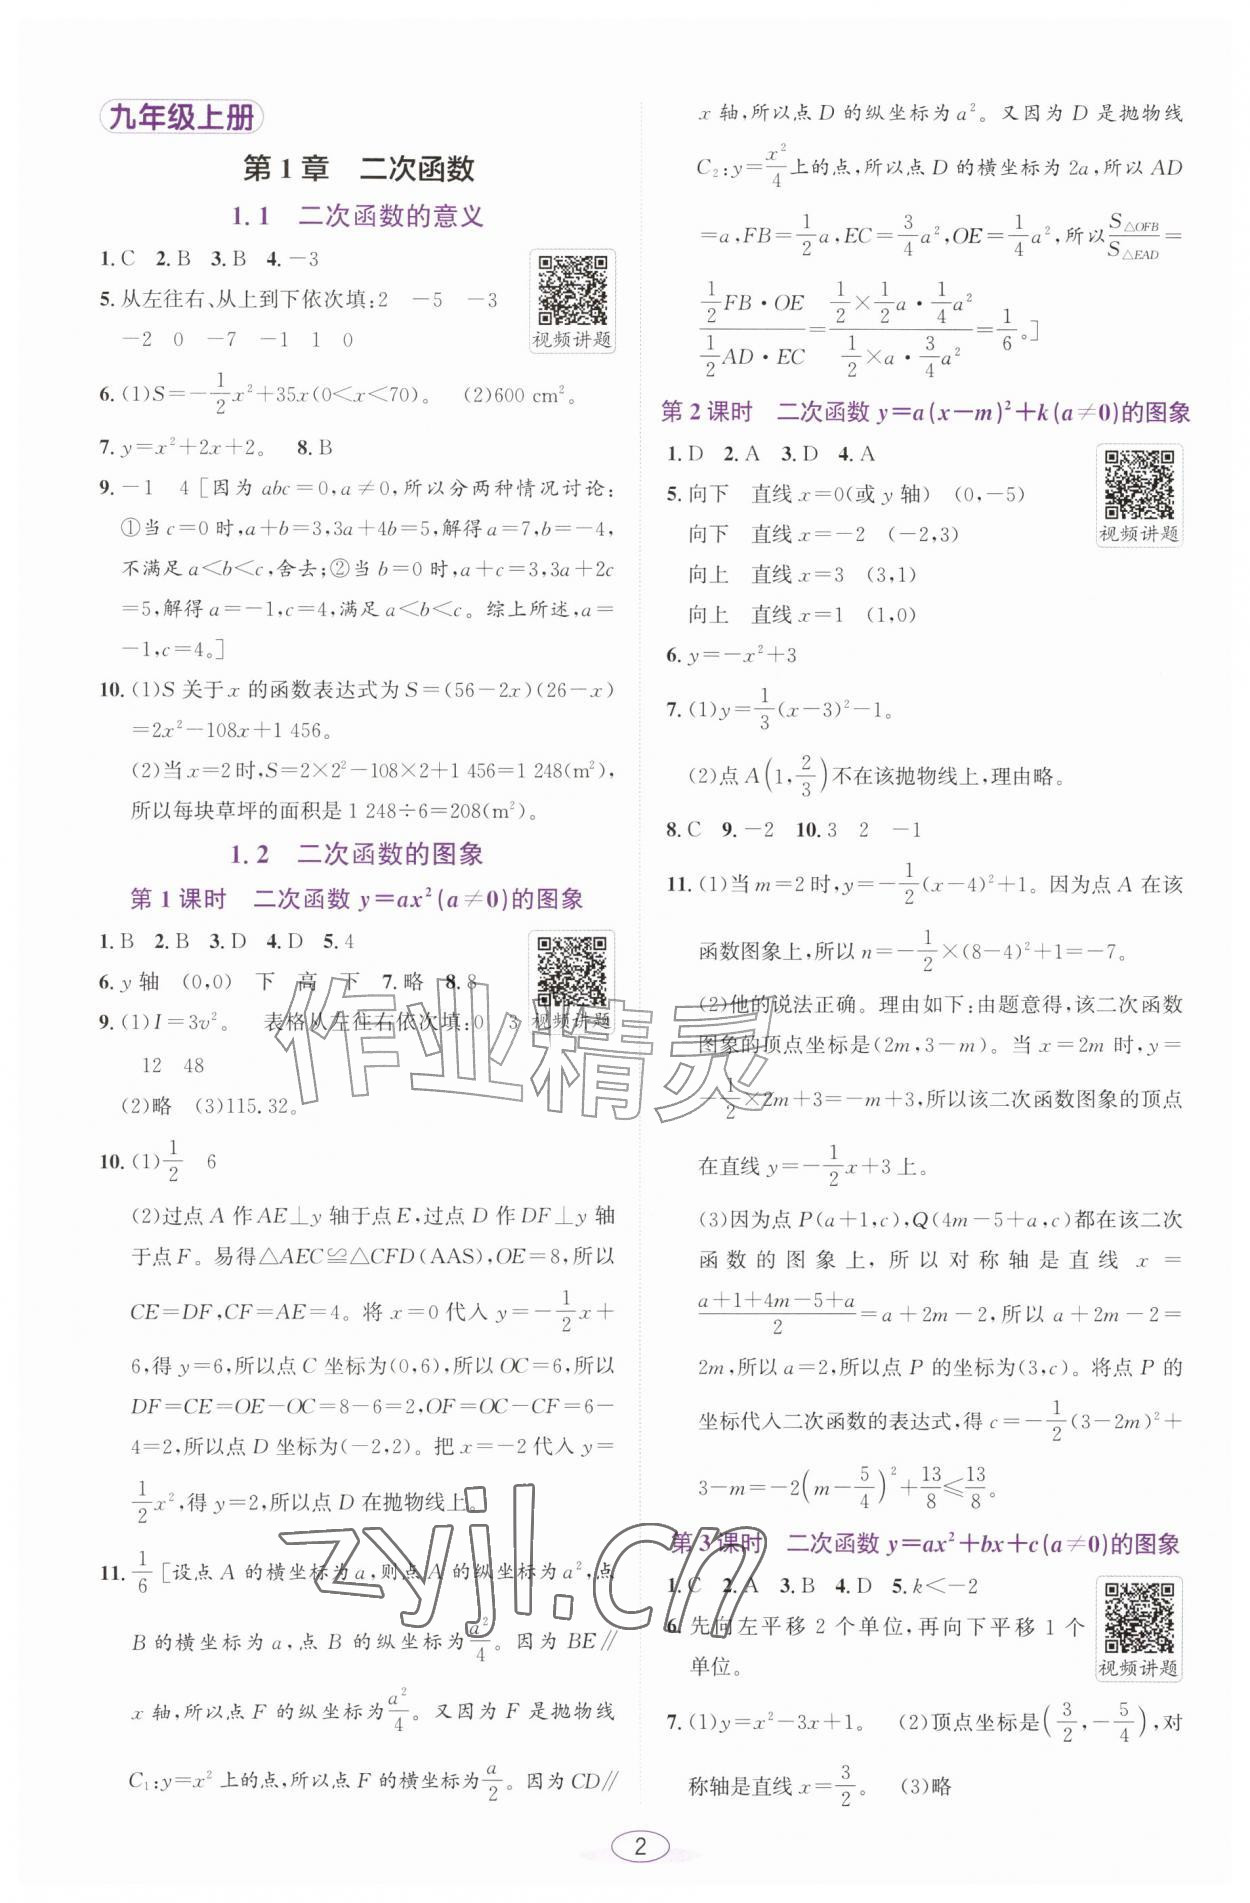 九年级上册
第1章　二次函数
1.1　二次函数的意义
1.C　2.B　3.B　4.－3
5.从左往右、从上到下依次填:2　－5　－3
－2　0　－7　－1　1　0
视频讲题
6.(1)S＝－1/2x²＋35x(0＜x＜70)。　(2)600 cm²。
7.y＝x²＋2x＋2。　8.B
9.－1　4［因为 abc＝0,a≠0,所以分两种情况讨论:
①当c＝0时,a＋b＝3,3a＋4b＝5,解得a＝7,b＝－4,
不满足a＜b＜c,舍去;②当b＝0时,a＋c＝3,3a＋2c
＝5,解得a＝－1,c＝4,满足a＜b＜c。综上所述,a＝
－1,c＝4。］
10.(1)S 关于x 的函数表达式为S＝(56－2x)(26－x)
＝2x²－108x＋1 456。
(2)当x＝2时,S＝2×2²－108×2＋1 456＝1 248(m²),
所以每块草坪的面积是1 248÷6＝208(m²)。
1.2　二次函数的图象
第1课时　二次函数 y＝ax²(a≠0)的图象
1.B　2.B　3.D　4.D　5.4
6.y轴　(0,0)　下　高　下　7.略　8.8
9.(1)I＝3v²。　表格从左往右依次填:0　3
视频讲题
12　48
(2)略　(3)115.32。
10.(1)1/2　6
(2)过点A作AE⊥y轴于点E,过点D作DF⊥y轴
于点F。易得△AEC≌△CFD(AAS),OE＝8,所以
CE＝DF,CF＝AE＝4。将 x＝0代入 y＝－1/2x＋
6,得y＝6,所以点C坐标为(0,6),所以OC＝6,所以
DF＝CE＝OE－OC＝8－6＝2,OF＝OC－CF＝6－
4＝2,所以点D坐标为(－2,2)。把x＝－2代入y＝
1/2x²,得y＝2,所以点D在抛物线上。
11.1/6［设点A的横坐标为a,则点A的纵坐标为a²,点
B的横坐标为a,点B的纵坐标为a²/4。因为BE∥
x轴,所以点F的纵坐标为a²/4。又因为F是抛物线
C₁:y＝x²上的点,所以点F的横坐标为a/2。因为CD∥
x轴,所以点D的纵坐标为a²。又因为D是抛物线
C₂:y＝x²/4上的点,所以点D的横坐标为2a,所以AD
＝a,FB＝1/2a,EC＝3/4a²,OE＝1/4a²,所以S△OFB/S△EAD＝
(1/2FB·OE)/(1/2AD·EC)＝(1/2×1/2a·1/4a²)/(1/2×a·3/4a²)＝1/6。］
第2课时　二次函数 y＝a(x－m)²＋k(a≠0)的图象
1.D　2.A　3.D　4.A
5.向下　直线x＝0(或y轴)　(0,－5)
向下　直线x＝－2　(－2,3)
视频讲题
向上　直线x＝3　(3,1)
向上　直线x＝1　(1,0)
6.y＝－x²＋3
7.(1)y＝1/3(x－3)²－1。
(2)点A(1,2/3)不在该抛物线上,理由略。
8.C　9.－2　10.3　2　－1
11.(1)当m＝2时,y＝－1/2(x－4)²＋1。因为点A在该
函数图象上,所以n＝－1/2×(8－4)²＋1＝－7。
(2)他的说法正确。理由如下:由题意得,该二次函数
图象的顶点坐标是(2m,3－m)。当x＝2m时,y＝
－1/2×2m＋3＝－m＋3,所以该二次函数图象的顶点
在直线y＝－1/2x＋3上。
(3)因为点P(a＋1,c),Q(4m－5＋a,c)都在该二次
函数的图象上,所以对称轴是直线x＝
(a＋1＋4m－5＋a)/2＝a＋2m－2,所以a＋2m－2＝
2m,所以a＝2,所以点P的坐标为(3,c)。将点P的
坐标代入二次函数的表达式,得c＝－1/2(3－2m)²＋
3－m＝－2(m－5/4)²＋13/8≤13/8。
第3课时　二次函数 y＝ax²＋bx＋c(a≠0)的图象
1.C　2.A　3.B　4.D　5.k＜－2
6.先向左平移2个单位,再向下平移1个
单位。
视频讲题
7.(1)y＝x²－3x＋1。　(2)顶点坐标是(3/2,－5/4),对
称轴是直线x＝3/2。　(3)略
2
作业精灵
zyjl.cn